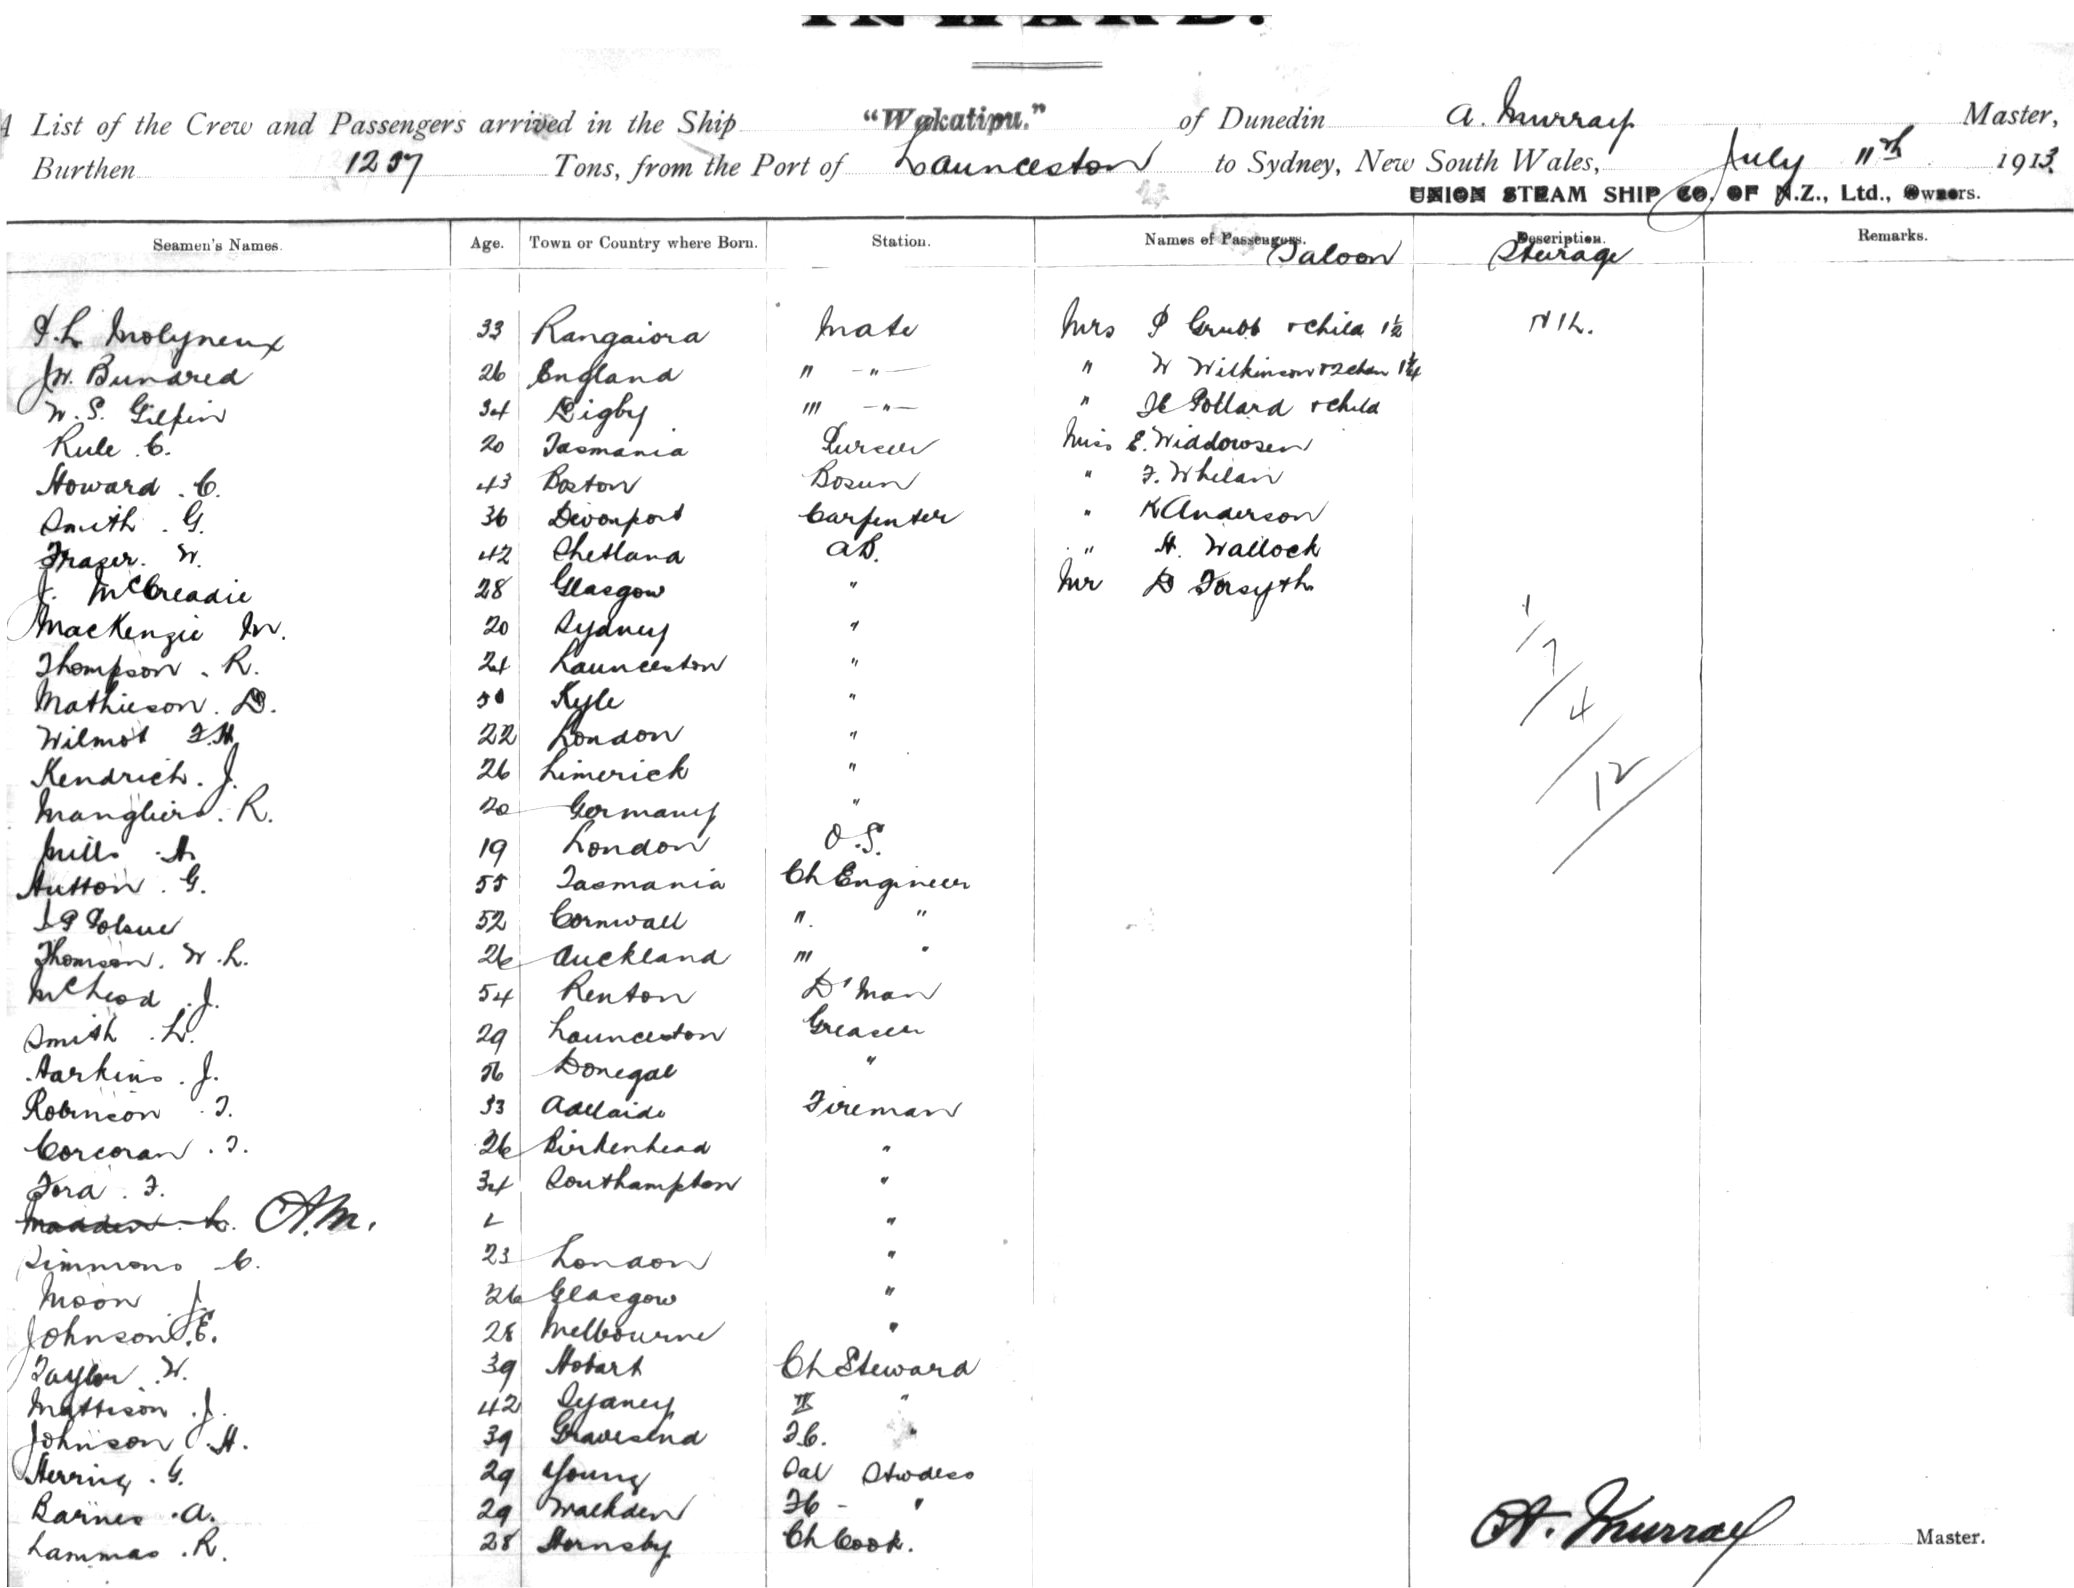 INWARD.
A List of the Crew and Passengers arrived in the Ship "Wakatipu." of Dunedin A. Murray Master,
Burthen 1257 Tons, from the Port of Launceston to Sydney, New South Wales, July 11th 1913.
UNION STEAM SHIP CO. OF N.Z., Ltd., Owners.
Seamen's Names. Age. Town or Country where Born. Station. Names of Passengers. Description. Remarks.
Saloon Steerage
Molyneux 33 Rangaiora Mate Mrs P Grubb & child 1½ Nil.
J.W. Bundred 26 England " -"- " W Wilkinson & 2 chdn 1¼
W. S. Gilpin 34 Digby "' -"- " Pollard & child
Rule C. 20 Tasmania Purser Miss E. Widdowsen
Howard . C. 43 Boston Bosun " F. Whelan
Smith . G. 36 Devonport Carpenter " K Anderson
Fraser. W. 42 Shetland AB. " H. Wallock
J. McCreadie 28 Glasgow " Mr D Forsyth
MacKenzie M. 20 Sydney "
Thompson . R. 24 Launceston "
Mathieson . D. 50 Kyle "
Wilmot F.H. 22 London "
Kendrich . J. 26 Limerick "
R. 20 Germany "
Mills . A 19 London O.S.
Hutton . G. 55 Tasmania Ch Engineer
52 Cornwall " "
Thomson. W. L. 26 Auckland "' "
McLeod . J. 54 Renton D'Man
Smith . L. 29 Launceston Greaser
Harkins . J. 56 Donegal "
Robinson . T. 33 Adelaide Fireman
Corcoran . T. 26 Birkenhead "
Ford . F. 34 Southampton "
Madden L. A.M. "
Simmons C. 23 London "
Moon J. 26 Glasgow "
Johnson . E. 28 Melbourne "
Taylor . W. 39 Hobart Ch Steward
Mattison . J. 42 Sydney II "
Johnson . H. 39 Gravesend F.C. "
Herring . G. 29 Young Sal Stwdess
Barnes . A. 29 FC - "
Lammas . R. 28 Hornsby Ch Cook.
1/
7/
4/
12/
A. Murray Master.